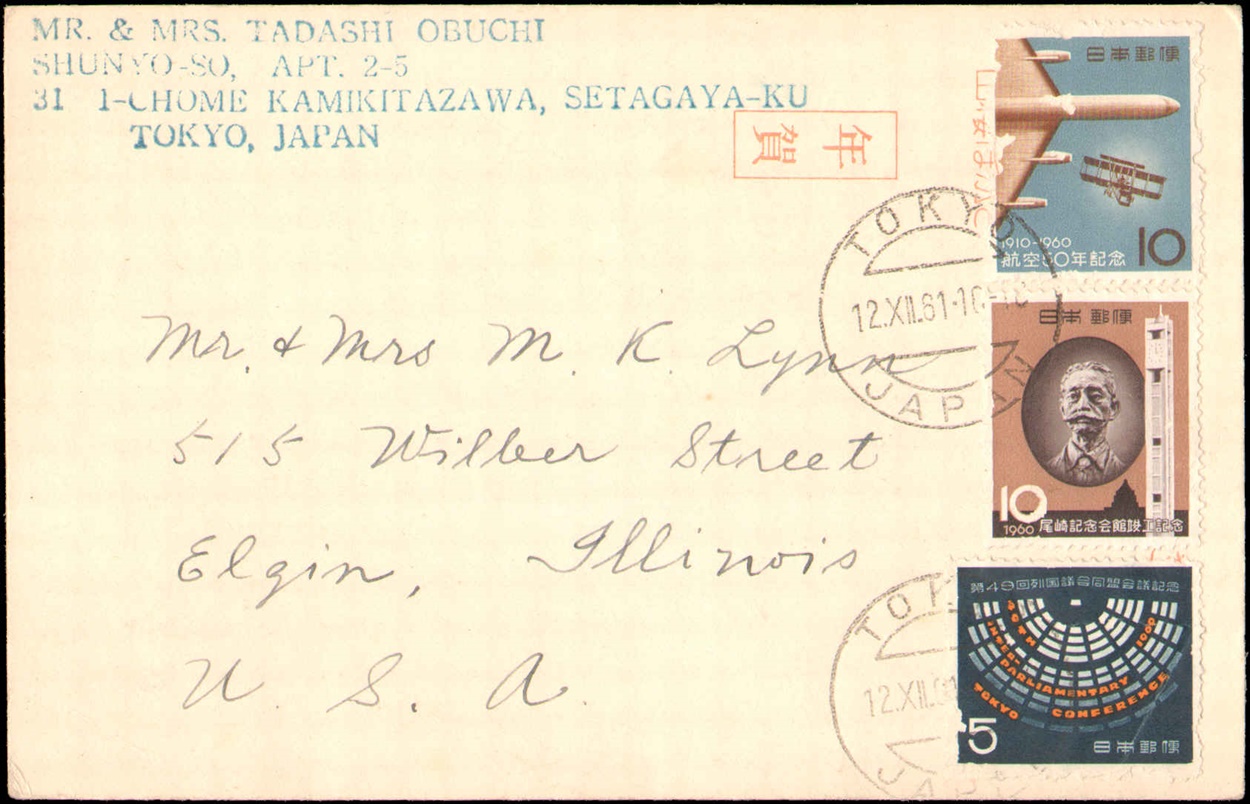 MR. & MRS. TADASHI OBUCHI
SHUNYO-SO, APT. 2-5
31 1-CHOME KAMIKITAZAWA, SETAGAYA-KU
TOKYO, JAPAN
年賀
Mr. & Mrs M. K. Lynn
515 Wilber Street
Elgin, Illinois
U. S. A.
日本郵便
1910-1960
航空50年記念
10
TOKYO
12.XII.61
JAPAN
日本郵便
10
1960 尾崎記念会館竣工記念
第49回列国議会同盟会議記念
49TH
INTER-
PARLIAMENTARY
CONFERENCE
TOKYO
1960
5
日本郵便
TOK
12.XII.
JAP